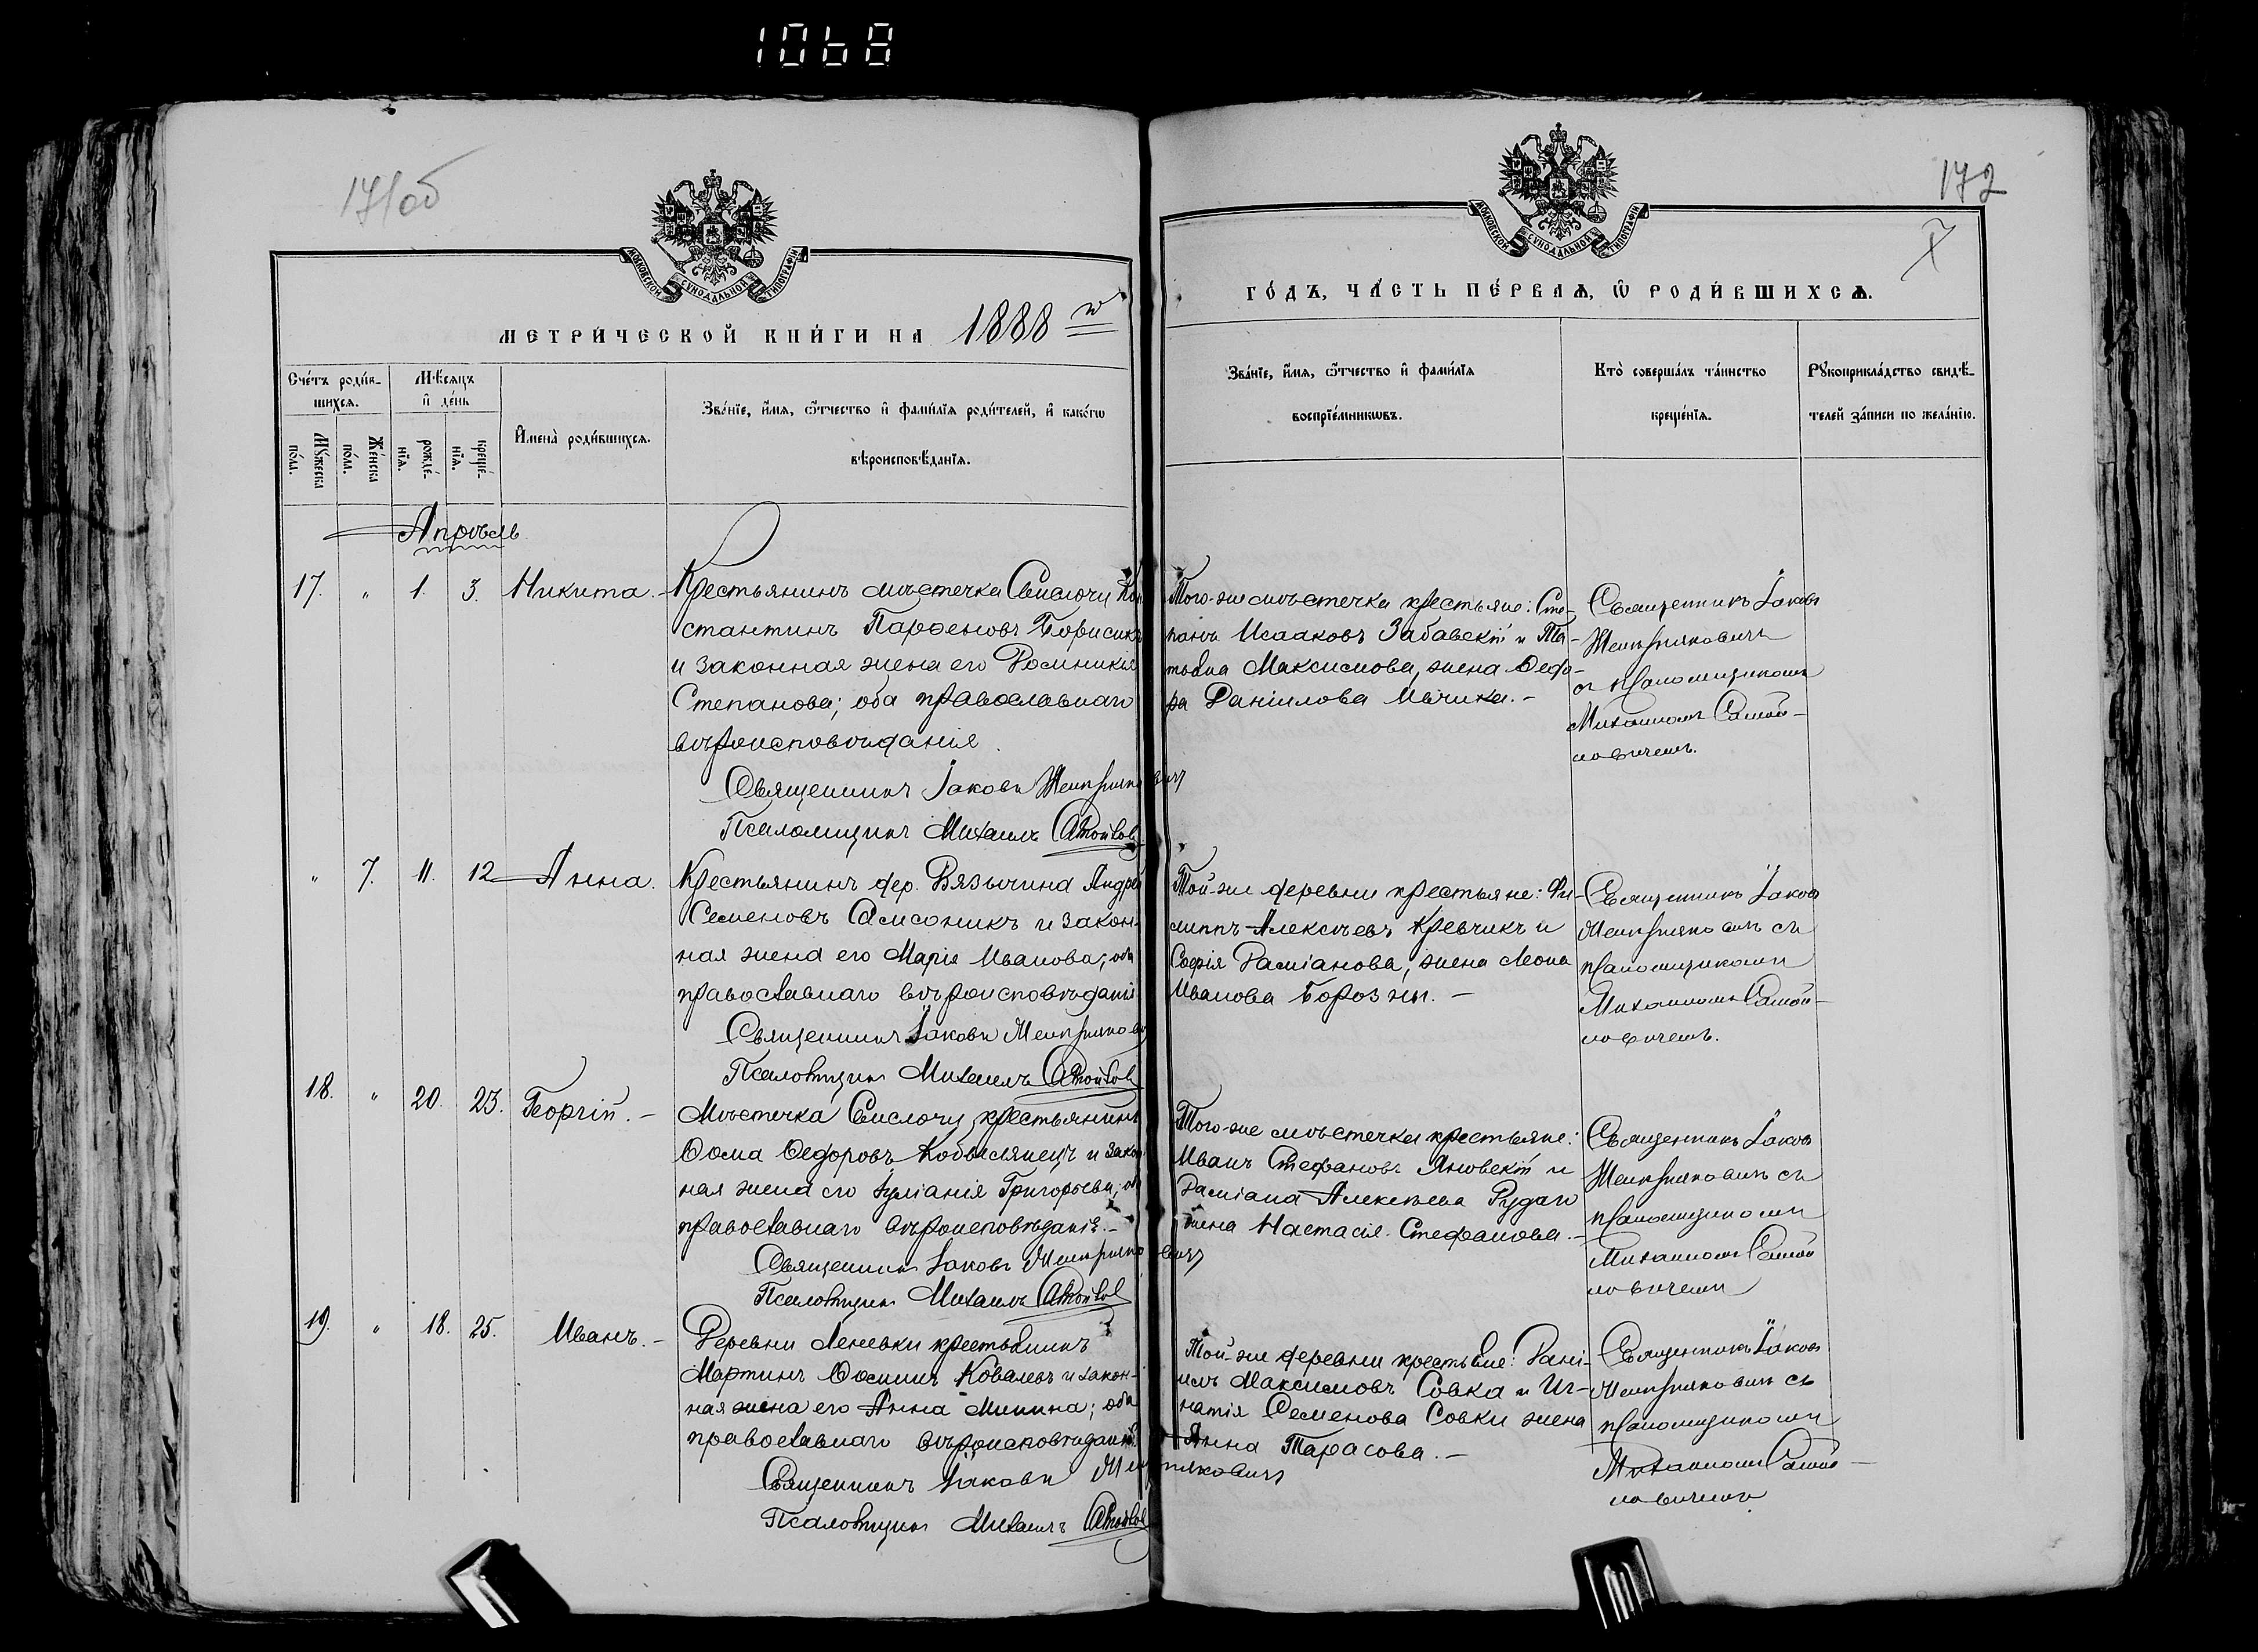 1068
171об
МОСКОВСКОЙ СУНОДАЛЬНОЙ ТИПОГРАФІИ
МЕТРИ́ЧЕСКОЙ КНИ́ГИ НА 1888 й
Сче́тъ роди́в-
шихсѧ.
Мѣ́сѧцъ
и҆ де́нь
И҆мена̀ роди́вшихсѧ.
Зва́нїе, и҆́мѧ, ѻ҆́тчество и҆ фами́лїѧ роди́телей, и҆ како́гѡ
вѣроисповѣ́данїѧ.
Мꙋ́жеска
по́ла.
Же́нска
по́ла.
рожде́-
нїѧ.
креще́-
нїѧ.
Апрѣль
17. " 1. 3. Никита. Крестьянинъ мѣстечка Свислочи Кон
стантинъ Парѳеновъ Борисикъ
и законная жена его Домникія
Степанова; оба православнаго
вѣроисповѣданія.
Священникъ Іаковъ
Псаломщикъ Михаилъ
" 7. 11. 12 Анна. Крестьянинъ дер. Вязычина Андрей
Семеновъ Самсоникъ и закон-
ная жена его Марія Иванова; оба
православнаго вѣроисповѣданія
Священникъ Іаковъ
Псаломщикъ Михаилъ
18. " 20. 23. Георгій. - Мѣстечка Свислочи крестьянинъ
Ѳома Ѳедоровъ Кобылянецъ и закон
ная жена его Іуліанія Григорьева; оба
православнаго вѣроисповѣданія. -
Священникъ Іаковъ
Псаломщикъ Михаилъ
19. " 18. 25. Иванъ. - Деревни Леневки крестьянинъ
Мартинъ Ѳоминъ Ковалевъ и закон-
ная жена его Анна Минина; оба
православнаго вѣроисповѣданія
Священникъ Іаковъ
Псаломщикъ Михаилъ
172
МОСКОВСКОЙ СУНОДАЛЬНОЙ ТИПОГРАФІИ
ГО́ДЪ, ЧА́СТЬ ПЕ́РВАѦ, Ѡ҆ РОДИ́ВШИХСѦ.
Зва́нїе, и҆́мѧ, ѻ҆́тчество и҆ фами́лїѧ
воспрїе́мникѡвъ.
Кто̀ соверша́лъ та́инство
креще́нїѧ.
Рꙋкоприкла́дство свидѣ́-
телей за́писи по жела́нїю.
Того-же мѣстечка крестьяне: Сте-
панъ Исааковъ Забавскій и Та-
тьяна Максимова, жена Ѳедо-
ра Даніилова Ивчика. -
Священникъ Іаковъ
съ псаломщикомъ
Михаиломъ Самой-
ловичемъ.
Той-же деревни крестьяне: Фи-
липпъ Алексѣевъ Кревчикъ и
Софія Даміанова, жена Леона
Иванова Борозны. -
Священникъ Іаковъ
съ
псаломщикомъ
Михаиломъ Самой-
ловичемъ.
Того-же мѣстечка крестьяне:
Иванъ Стефановъ Яновскій и
Даміана Алексѣева Рудаго
жена Настасія Стефанова. -
Священникъ Іаковъ
съ
псаломщикомъ
Михаиломъ Самой
ловичемъ
Той-же деревни крестьяне: Дані-
илъ Максимовъ Совка и Иг-
натія Семенова Совки жена
Анна Тарасова. -
Священникъ Іаковъ
съ
псаломщикомъ
Михаиломъ Самой-
ловичемъ